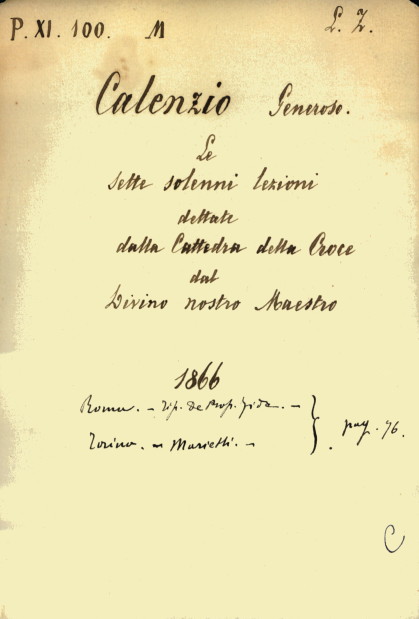 P. XI. 100. M L. Z.
Calenzio Generoso.
Le
sette solenni lezioni
dettate
dalla Cattedra della Croce
dal
Divino nostro Maestro
1866
Roma. – Tip. de Prop. Fide. –
Torino. – Marietti. –
} pag. 76.
C